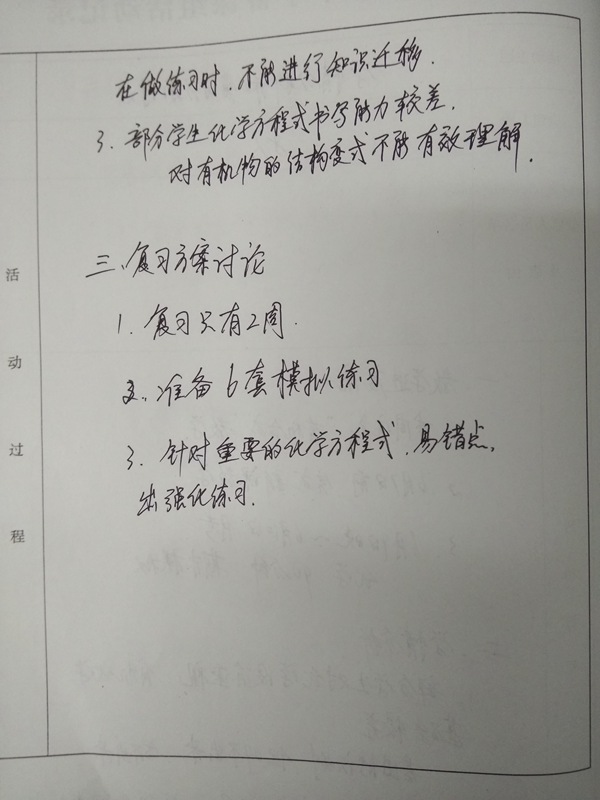 在做练习时，不能进行知识迁移．
3．部分学生化学方程式书写能力较差，
对有机物的结构变式不能有效理解．
三、复习方案讨论
1．复习只有2周．
2．准备6套模拟练习
3．针对重要的化学方程式，易错点，
出强化练习．
活动过程